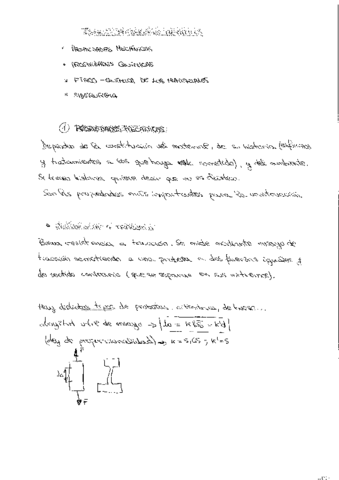 • PROPIEDADES MECÁNICAS
• PROPIEDADES QUÍMICAS
• FÍSICO-QUÍMICA DE LOS MATERIALES
• SIDERURGIA
① PROPIEDADES MECÁNICAS:
Depender de la constitución del material, de su historia (esfuerzos
y tratamientos a los que haya sido sometido), y del ambiente.
Se trama historia quiere decir que no es elástico.
Son las propiedades más importantes para la construcción.
Buena resistencia a tracción. Se mide mediante ensayo de
tracción sometiendo a una probeta a dos fuerzas iguales y
de sentido contrario (que se separan en sus extremos).
Hay distintos tipos de probetas, cilíndrica, de
Longitud útil de ensayo → lo = K√So = K'd
(Ley de proporcionalidad) → K = 5,65 ; K' = 5
F
lo
F